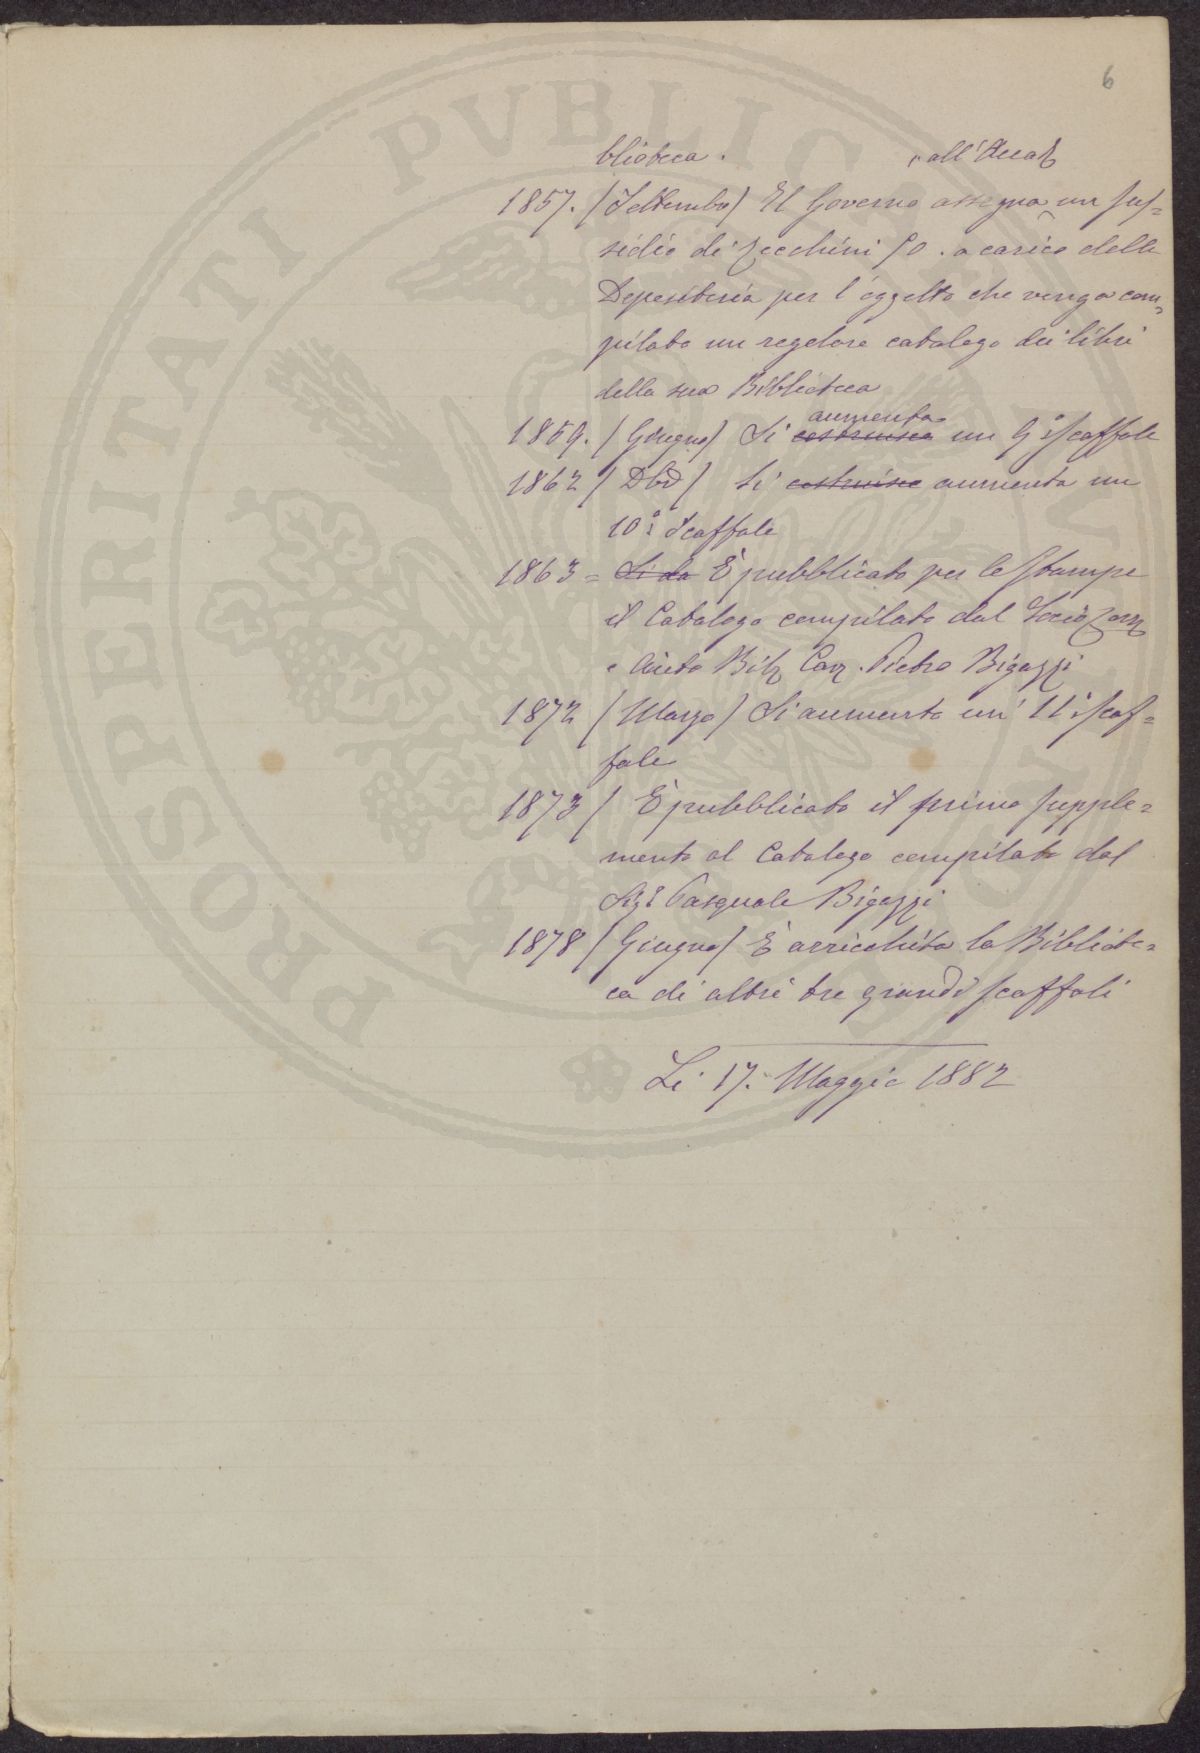 6
blioteca. all'Accad
1857. (Settembre) Il Governo assegna un sus=
sidio di Zecchini 50. a carico della
Depositeria per l'oggetto che venga com=
pilato un regolare catalogo dei libri
della sua Biblioteca
aumenta
1859. (Giugno) Si costruisce un 9° scaffale
1862 (Dbr) Si costruisce aumenta un
10° Scaffale
1863 = Si da È pubblicato per le Stampe
il Catalogo compilato dal Socio
e Aiuto Bib Cav. Pietro Bigazzi
1872 (Marzo) Si aumenta un' 11° scaf=
fale
1873 / È pubblicato il primo supple=
mento al Catalogo compilato dal
Sigr Pasquale Bigazzi
1878 (Giugno) È arricchita la Bibliote=
ca di altri tre grandi scaffali
Li 17. Maggio 1882
PROSPERITATI PVBLICAE